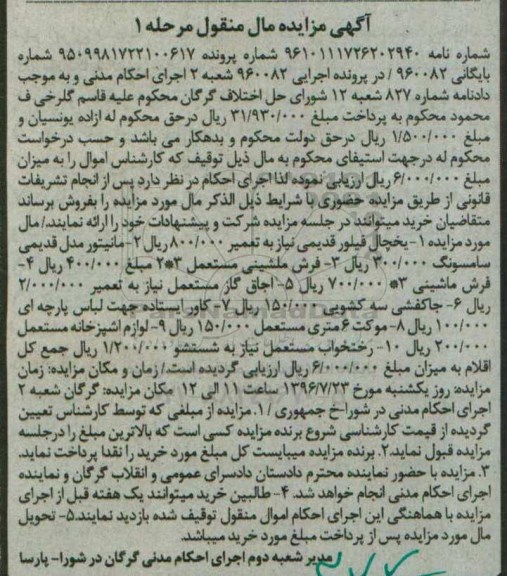 آگهی مزایده مال منقول مرحله ۱
شماره نامه ۹۶۱۰۱۱۱۷۲۶۲۰۲۹۴۰ شماره پرونده ۹۵۰۹۹۸۱۷۲۲۱۰۰۶۱۷ شماره
بایگانی ۹۶۰۰۸۲ / در پرونده اجرایی ۹۶۰۰۸۲ شعبه ۲ اجرای احکام مدنی و به موجب
دادنامه شماره ۸۲۷ شعبه ۱۲ شورای حل اختلاف گرگان محکوم علیه قاسم گلرخی ف
محمود محکوم به پرداخت مبلغ ۳۱/۹۳۰/۰۰۰ ریال درحق محکوم له ازاده یونسیان و
مبلغ ۱/۵۰۰/۰۰۰ ریال درحق دولت محکوم و بدهکار می باشد و حسب درخواست
محکوم له درجهت استیفای محکوم به مال ذیل توقیف که کارشناس اموال را به میزان
مبلغ ۶/۰۰۰/۰۰۰ ریال ارزیابی نموده لذا اجرای احکام در نظر دارد پس از انجام تشریفات
قانونی از طریق مزایده حضوری با شرایط ذیل الذکر مال مورد مزایده را بفروش برساند
متقاضیان خرید میتوانند در جلسه مزایده شرکت و پیشنهادات خود را ارائه نمایند./ مال
مورد مزایده ۱- یخچال فیلور قدیمی نیاز به تعمیر ۸۰۰/۰۰۰ ریال ۲- مانیتور مدل قدیمی
سامسونگ ۳۰۰/۰۰۰ ریال ۳- فرش ماشینی مستعمل ۳*۲ مبلغ ۴۰۰/۰۰۰ ریال ۴-
فرش ماشینی ۳* ۷۰۰/۰۰۰ ریال ۵- اجاق گاز مستعمل نیاز به تعمیر ۲/۰۰۰/۰۰۰
ریال ۶- جاکفشی سه کشویی ۱۵۰/۰۰۰ ریال ۷- کاور ایستاده جهت لباس پارچه ای
۱۰۰/۰۰۰ ریال ۸- موکت ۶ متری مستعمل ۱۵۰/۰۰۰ ریال ۹- لوازم اشپزخانه مستعمل
۲۰۰/۰۰۰ ریال ۱۰- رختخواب مستعمل نیاز به شستشو ۱/۲۰۰/۰۰۰ ریال جمع کل
اقلام به میزان مبلغ ۶/۰۰۰/۰۰۰ ریال ارزیابی گردیده است./ زمان و مکان مزایده: زمان
مزایده: روز یکشنبه مورخ ۱۳۹۶/۷/۲۳ ساعت ۱۱ الی ۱۲ مکان مزایده: گرگان شعبه ۲
اجرای احکام مدنی در شورا-خ جمهوری / ۱. مزایده از مبلغی که توسط کارشناس تعیین
گردیده از قیمت کارشناسی شروع برنده مزایده کسی است که بالاترین مبلغ را درجلسه
مزایده قبول نماید. ۲. برنده مزایده میبایست کل مبلغ مورد خرید را نقدا پرداخت نماید.
۳. مزایده با حضور نماینده محترم دادستان دادسرای عمومی و انقلاب گرگان و نماینده
اجرای احکام مدنی انجام خواهد شد. ۴- طالبین خرید میتوانند یک هفته قبل از اجرای
مزایده با هماهنگی این اجرای احکام اموال منقول توقیف شده بازدید نمایند.۵- تحویل
مال مورد مزایده پس از پرداخت مبلغ مورد خرید میباشد.
مدیر شعبه دوم اجرای احکام مدنی گرگان در شورا- پارسا